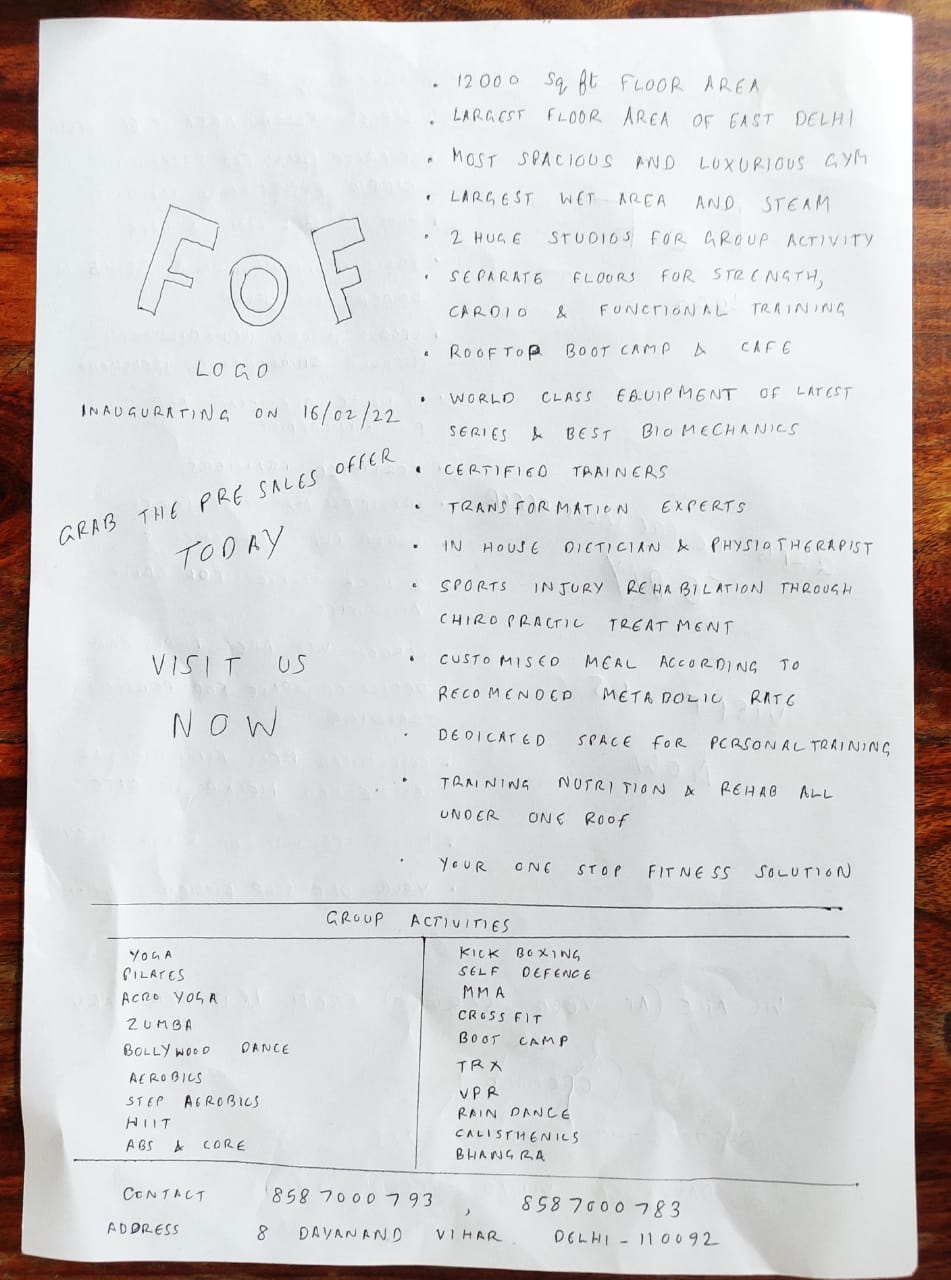 FOF
LOGO
INAUGURATING ON 16/02/22
GRAB THE PRE SALES OFFER
TODAY
VISIT US
NOW
• 12000 Sq ft FLOOR AREA
• LARGEST FLOOR AREA OF EAST DELHI
• MOST SPACIOUS AND LUXURIOUS GYM
• LARGEST WET AREA AND STEAM
• 2 HUGE STUDIOS FOR GROUP ACTIVITY
• SEPARATE FLOORS FOR STRENGTH,
CARDIO & FUNCTIONAL TRAINING
• ROOFTOP BOOT CAMP & CAFE
• WORLD CLASS EQUIPMENT OF LATEST
SERIES & BEST BIOMECHANICS
• CERTIFIED TRAINERS
• TRANSFORMATION EXPERTS
• IN HOUSE DIETICIAN & PHYSIOTHERAPIST
• SPORTS INJURY REHABILATION THROUGH
CHIROPRACTIC TREATMENT
• CUSTOMISED MEAL ACCORDING TO
RECOMENDED METABOLIC RATE
• DEDICATED SPACE FOR PERSONAL TRAINING
• TRAINING NUTRITION & REHAB ALL
UNDER ONE ROOF
• YOUR ONE STOP FITNESS SOLUTION
GROUP ACTIVITIES
YOGA
PILATES
ACRO YOGA
ZUMBA
BOLLYWOOD DANCE
AEROBICS
STEP AEROBICS
HIIT
ABS & CORE
KICK BOXING
SELF DEFENCE
MMA
CROSSFIT
BOOT CAMP
TRX
VPR
RAIN DANCE
CALISTHENICS
BHANGRA
CONTACT 8587000793, 8587000783
ADDRESS 8 DAYANAND VIHAR DELHI - 110092